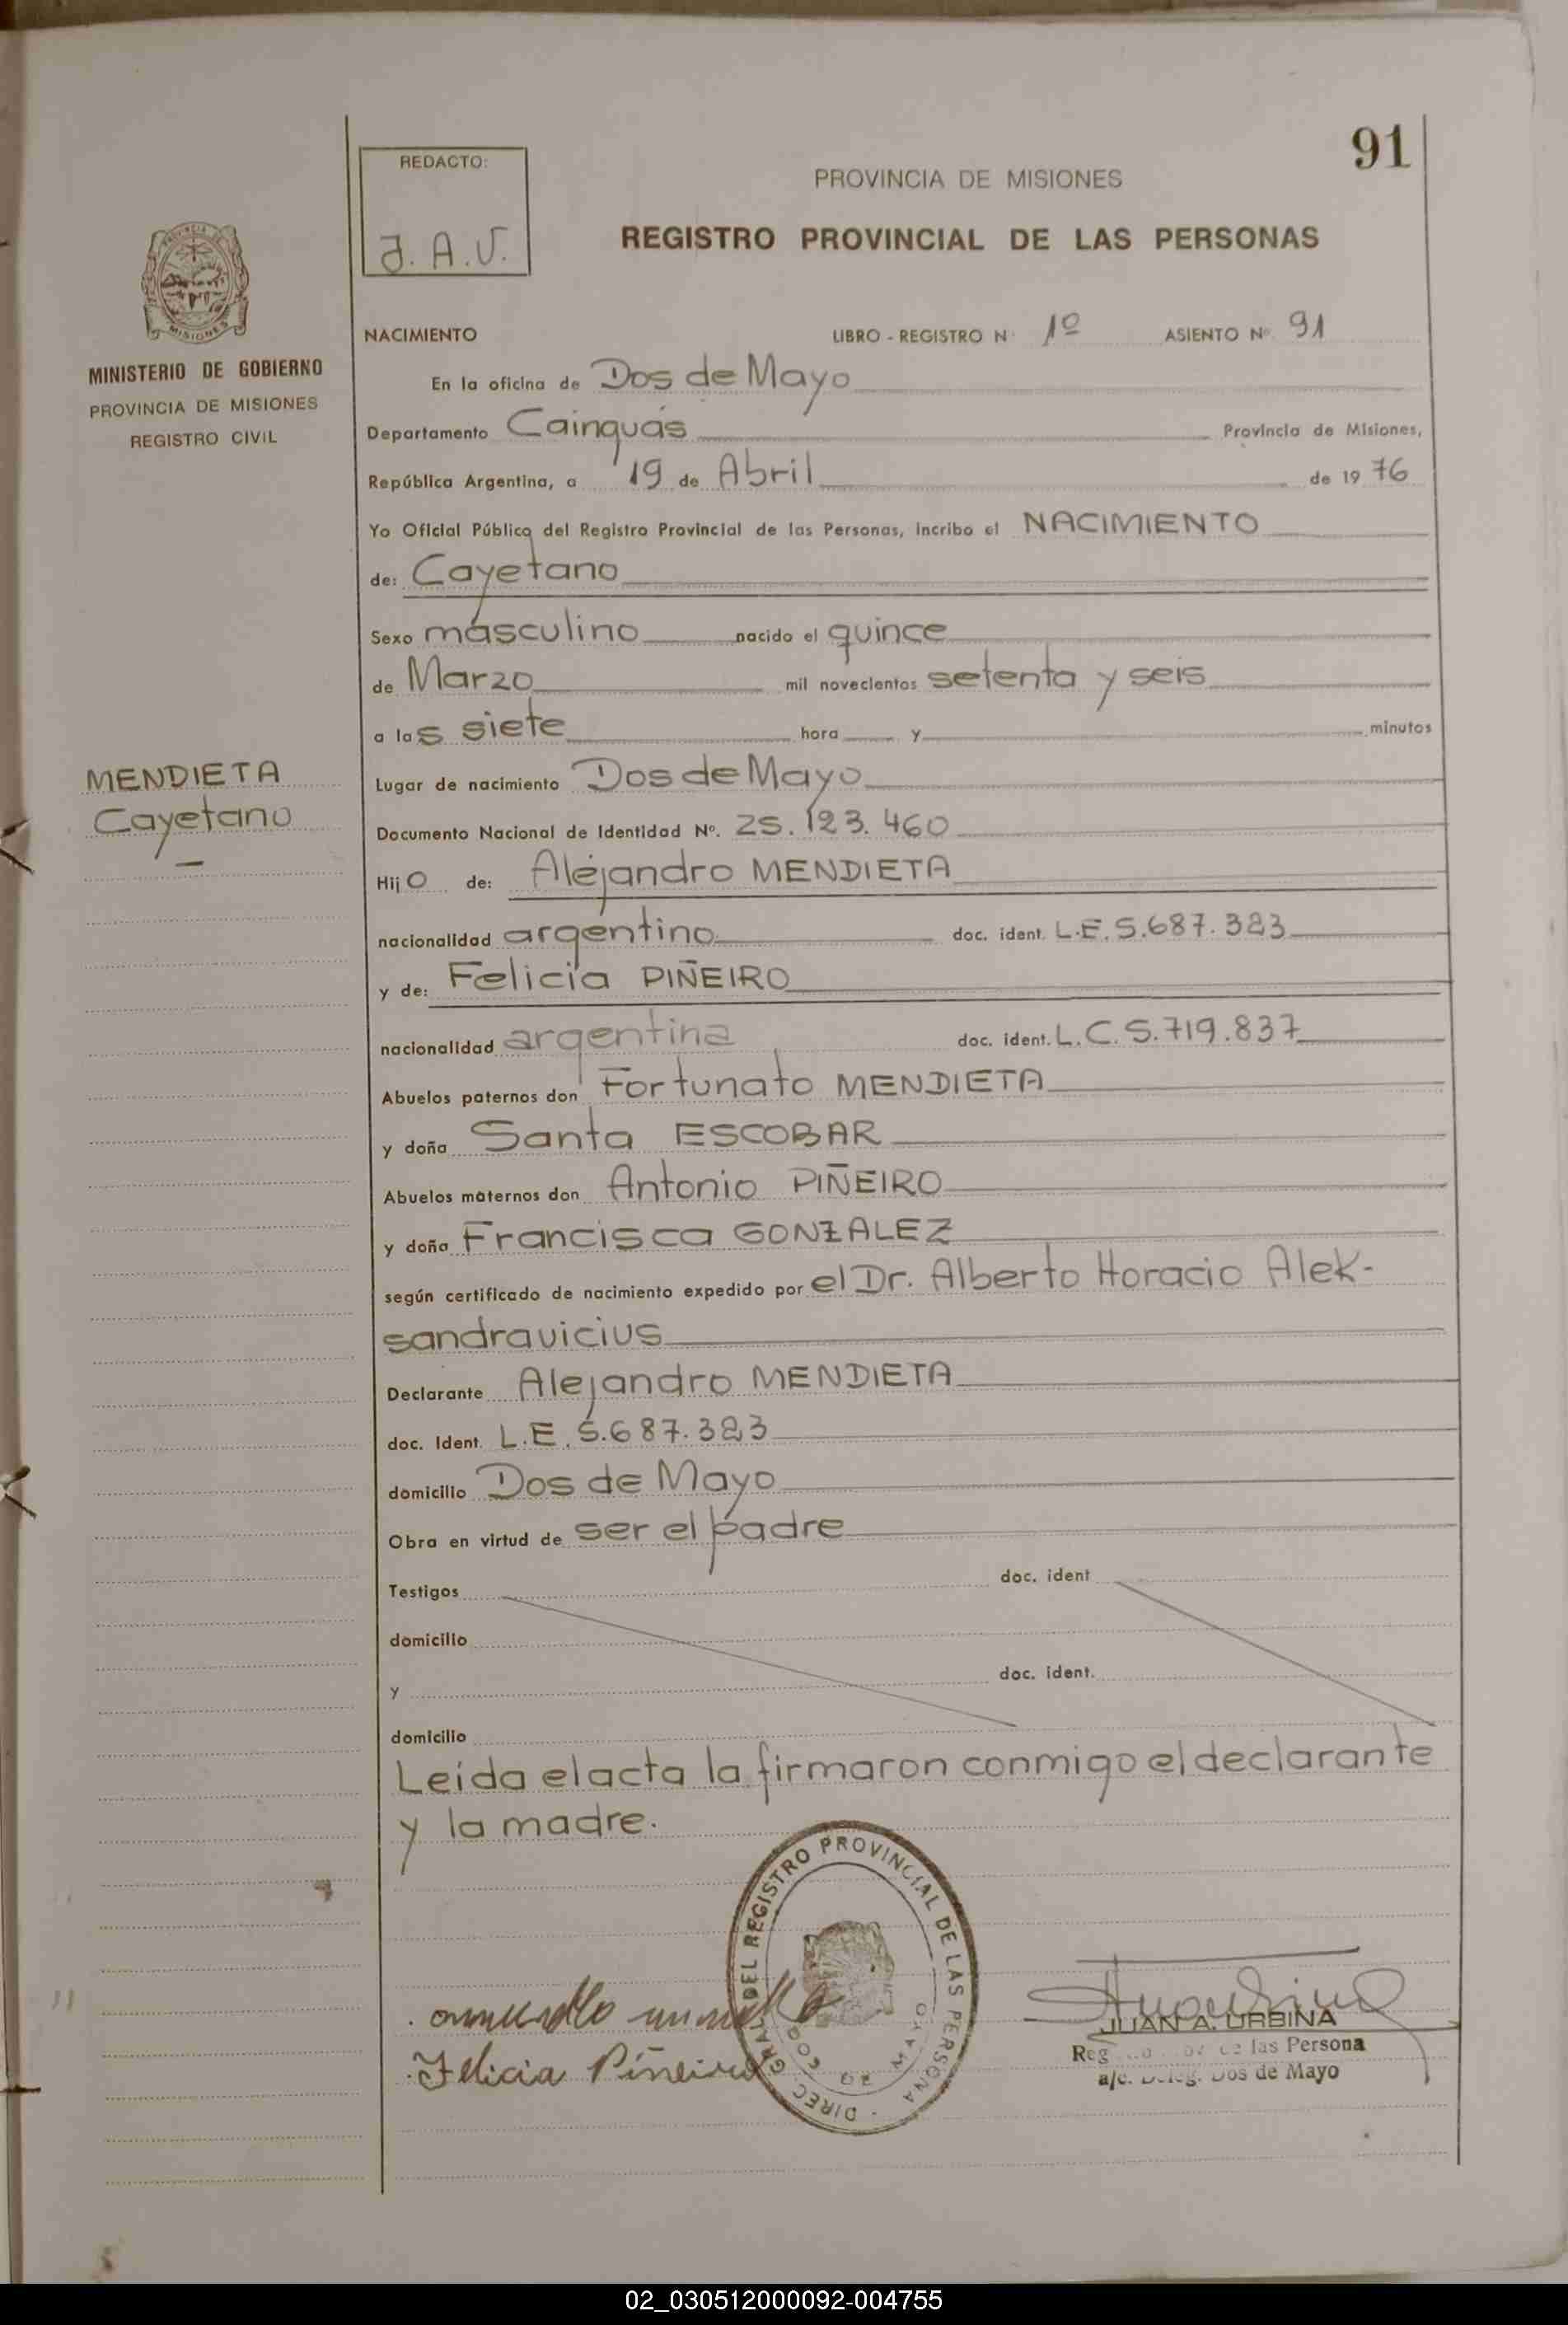 91
REDACTO:
J. A. U.
PROVINCIA DE MISIONES
REGISTRO PROVINCIAL DE LAS PERSONAS
MISIONES
MINISTERIO DE GOBIERNO
PROVINCIA DE MISIONES
REGISTRO CIVIL
MENDIETA
Cayetano
NACIMIENTO LIBRO - REGISTRO N° 1º ASIENTO Nº 91
En la oficina de Dos de Mayo
Departamento Cainguás Provincia de Misiones,
República Argentina, a 19 de Abril de 1976
Yo Oficial Público del Registro Provincial de las Personas, incribo el NACIMIENTO
de: Cayetano
Sexo masculino nacido el quince
de Marzo mil novecientos setenta y seis
a las siete hora y minutos
Lugar de nacimiento Dos de Mayo
Documento Nacional de Identidad Nº. 25.123.460
Hijo de: Alejandro MENDIETA
nacionalidad argentino doc. ident. L.E. 5.687.323
y de: Felicia PIÑEIRO
nacionalidad argentina doc. ident. L.C. 5.719.837
Abuelos paternos don Fortunato MENDIETA
y doña Santa ESCOBAR
Abuelos maternos don Antonio PIÑEIRO
y doña Francisca GONZALEZ
según certificado de nacimiento expedido por el Dr. Alberto Horacio Alek-
sandravicius
Declarante Alejandro MENDIETA
doc. Ident. L.E. 5.687.323
domicilio Dos de Mayo
Obra en virtud de ser el padre
Testigos doc. ident
domicilio
y doc. ident.
domicilio
Leída el acta la firmaron conmigo el declarante
y la madre.
DIREC GRAL DEL REGISTRO PROVINCIAL DE LAS PERSONA
MAYO
Felicia Piñeiro
JUAN A. URBINA
las Persona
a/c. Deleg. Dos de Mayo
02_030512000092-004755